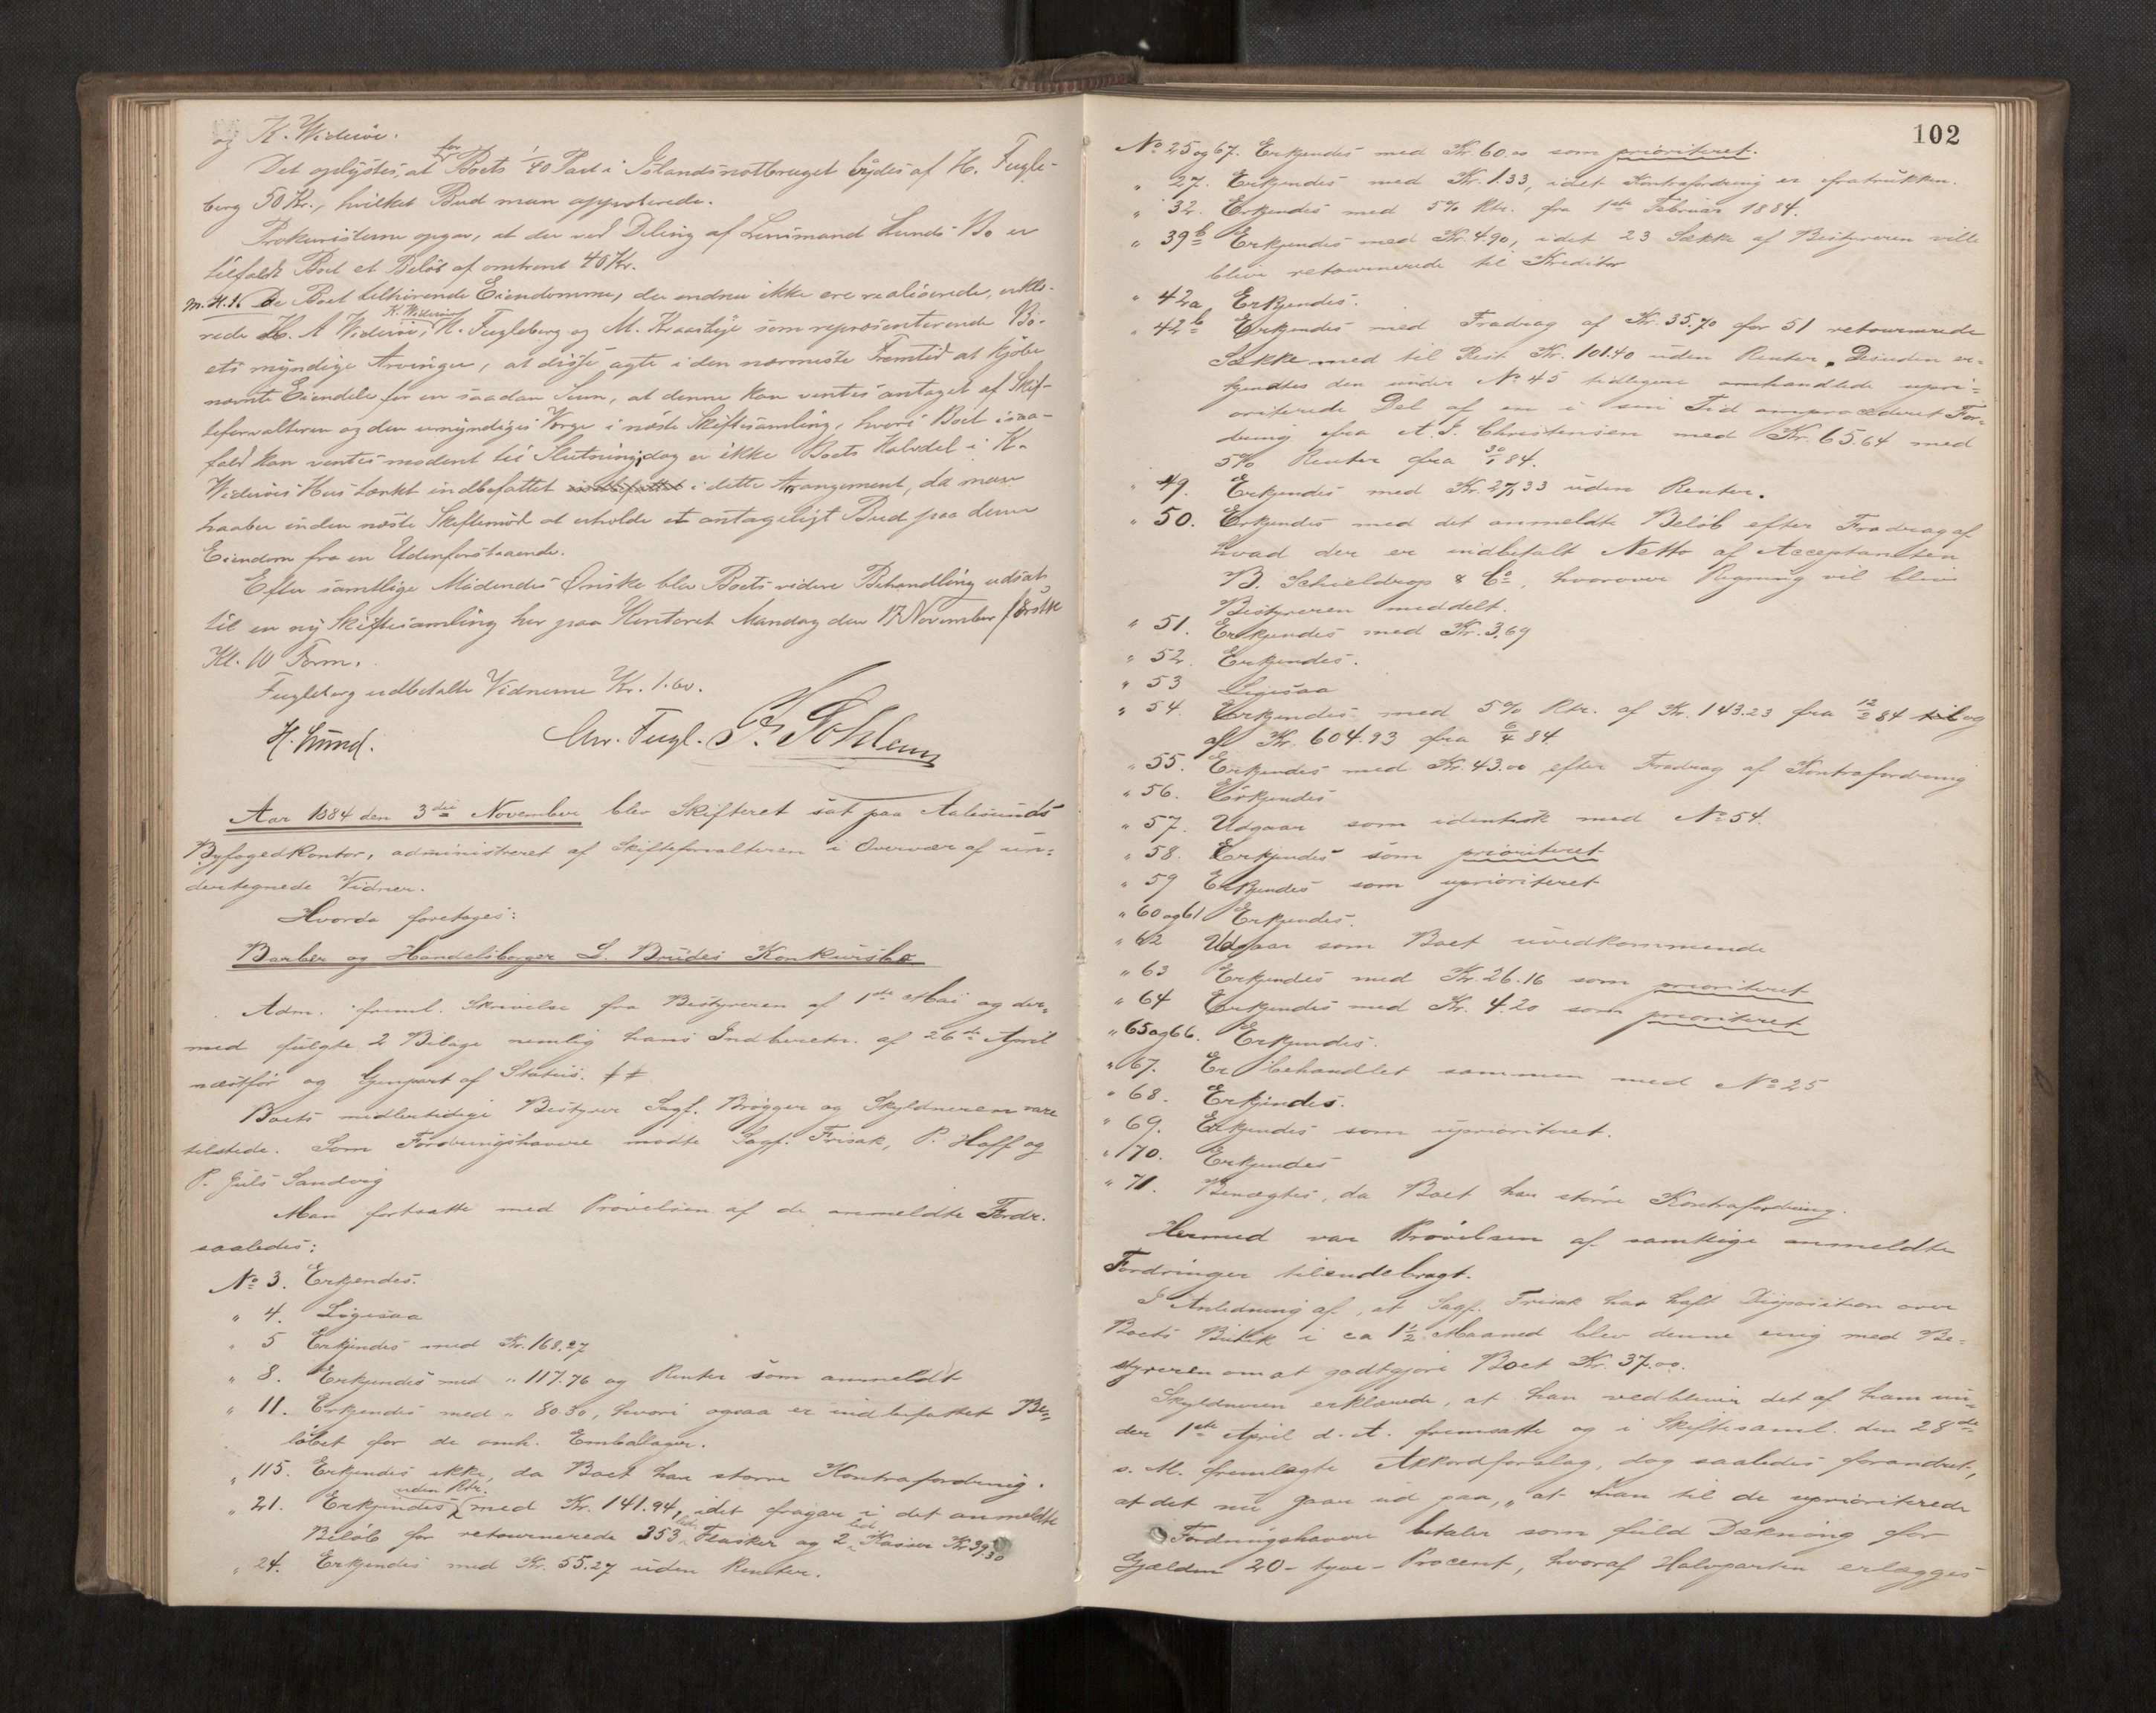 og K. Widerøe.
Det oplystes, at for Boets 1/40 Part i Islandsnotbruget bydes af H. Fugle-
berg 50 Kr., hvilket Bud man approberede.
Prokuristerne opgav, at der ved Deling af Lensmand Lunds Bo er
tilfaldt Boet et Beløb af omtrent 40 Kr.
M.H.t. De Boet tilhørende Eiendomme, der endnu ikke ere realiserede, erklæ-
rede H. A Widerøe, K. Widerøe, H. Fugleberg og M. Kraasbye som repræsenterende Bo-
ets myndige Arvinger, at disse agte i den nærmeste Fremtid at kjøbe
nævnte Eiendele for en saadan Sum, at denne kan ventes antaget af Skif-
teforvalteren og den umyndiges Værge i næste Skiftesamling, hvori Boet isaa-
fald kan ventes modent til Slutning; dog er ikke Boets Halvdel i K.
Widerøes Hus tænkt indbefattet indbefattet i dette Arrangement, da man
haaber inden næste Skiftemøde at erholde et antageligt Bud paa denne
Eiendom fra en Udenforstaaende.
Efter samtlige Mødendes Ønske blev Boets videre Behandling udsat
til en ny Skiftesamling her paa Kontoret Mandag den 17 November førstk
Kl. 10 Form.
Fugleberg udbetalte Vidnerne Kr. 1.60.
H. Lund. Chr. Fugl.
Aar 1884 den 3die November blev Skifteret sat paa Aalesunds
Byfogedkontor, administreret af Skifteforvalteren i Overvær af un-
dertegnede Vidner.
Hvorda foretoges:
Barber og Handelsborger L. Brudes Konkursbo
Adm. freml. Skrivelse fra Bestyreren af 1ste Mai og der-
med fulgte 2 Bilage nemlig hans Indberetn. af 26de April
næstfør og Genpart af Status. ##
Boets midlertidige Bestyrer Sagf. Brøgger og Skyldneren vare
tilstede. Som Fordringshavere mødte Sagf. Frisak, P. Hoff og
P. Juls Sandvig
Man fortsatte med Prøvelsen af de anmeldte Fordr.
saaledes:
No 3. Erkjendes.
" 4. Ligesaa
" 5 Erkjendes med Kr. 168.27
" 8. Erkjendes med " 117.76 og Renter som anmeldt
" 11. Erkjendes med " 80.30, hvori ogsaa er indbefattet Be-
løbet for de omh. Emballager.
" 115. Erkjendes ikke, da Boet har større Kontrafordring.
" 21. Erkjendes uden Rtr. med Kr. 141.94, idet fragaar i det anmeldte
Beløb for retournerede 353 Flasker og 2 Kasser Kr 39.30
" 24. Erkjendes med Kr. 55.27 uden Renter.
102
No 25 og 67. Erkjendes med Kr. 60.00 som prioriteret.
" 27. Erkjendes med Kr. 1.33, idet Kontrafordring er fratrukken.
" 32. Erkjendes med 5% Rtr. fra 1ste Februar 1884.
" 39b Erkjendes med Kr. 4.90, idet 23 Sække af Bestyreren ville
blive retournerede til Kreditor
" 42a Erkjendes.
" 42b Erkjendes med Fradrag af Kr. 35.70 for 51 retournerede
Sække med til Rest Kr. 101.40 uden Renter. Desuden er-
kjendtes den under No 45 tidligere omhandlede upri-
oriterede Del af en i sin Tid omprocederet For-
dring fra A. J. Christensen med Kr. 65.64 med
5% Renter fra 30/1 84.
" 49. Erkjendes med Kr. 27.33 uden Renter.
" 50. Erkjendes med det anmeldte Beløb efter Fradrag af
hvad der er indbetalt Netto af Acceptanten
B. Schieldrop & Co, hvorover Regning vil blive
Bestyreren meddelt.
" 51. Erkjendes med Kr. 3.69
" 52. Erkjendes.
" 53 Ligesaa
" 54. Erkjendes med 5% Rtr. af Kr. 143.23 fra 12/2 84 til og
af Kr. 604.93 fra 6/4 84.
" 55. Erkjendes med Kr. 43.00 efter Fradrag af Kontrafordring
" 56. Erkjendes
" 57. Udgaar som identisk med No 54.
" 58. Erkjendes som prioriteret
" 59 Erkjendes som uprioriteret
" 60 og 61 Erkjendes.
" 62 Udgaar som Boet uvedkommende
" 63 Erkjendes med Kr. 26.16 som prioriteret
" 64 Erkjendes med Kr. 4.20 som prioriteret
" 65 og 66. Erkjendes.
" 67. Er behandlet sammen med No 25
" 68. Erkjendes.
" 69. Erkjendes som uprioriteret.
" 170. Erkjendes
" 71. Benægtes, da Boet har større Kontrafordring.
Hermed var Prøvelsen af samtlige anmeldte
Fordringer tilendebragt.
I Anledning af, at Sagf. Frisak har haft Disposition over
Boets Butik i ca 1 1/2 Maaned blev denne enig med Be-
styreren om at godtgjøre Boet Kr. 37.00.
Skyldneren erklærede, at han vedbliver det af ham un-
der 1ste April d. A. fremsatte og i Skiftesaml. den 28de
s. M. fremlagte Akkordforslag, dog saaledes forandret,
at det nu gaar ud paa, „at han til de uprioriterede
Fordringshavere betaler som fuld Dækning for
Gjælden 20 - tyve - Procent, hvoraf Halvparten erlægges